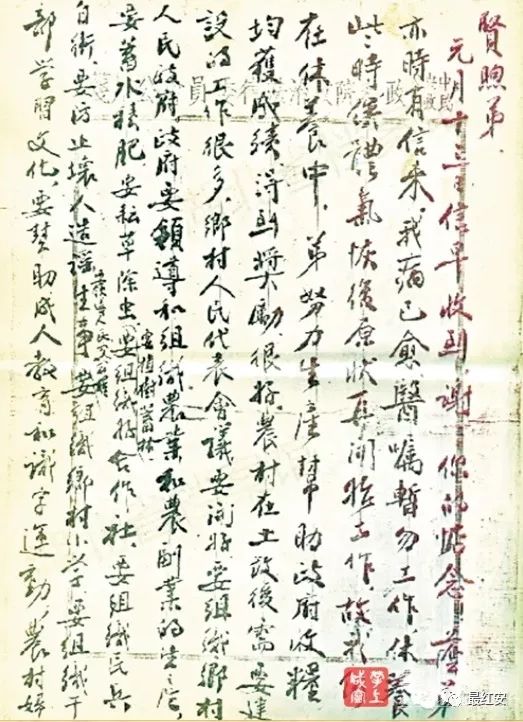 賢煦弟.
元月十三日信早收到,謝謝你的惦念。
亦時有信來,我病已愈,醫嘱暫勿工作,休養
些時俟體氣恢復原狀再開始工作,故我仍
在休養中。弟努力生產幫助政府收糧
均獲成績得到獎勵,很好。農村在土改後需要建
設的工作很多,鄉村人民代表會議要開好要組織鄉村
人民政府,政府要領導和組織農業和農副業的生產,
要蓄水積肥要耘草除虫,要植樹蓄林要組織好合作社,要組織民兵
自衛,要防止壞人造謠生事,要組織鄉村小學要組織干
部學習文化,要幫助成人教育和識字運動,農村婦
掌上咸寧
最红安